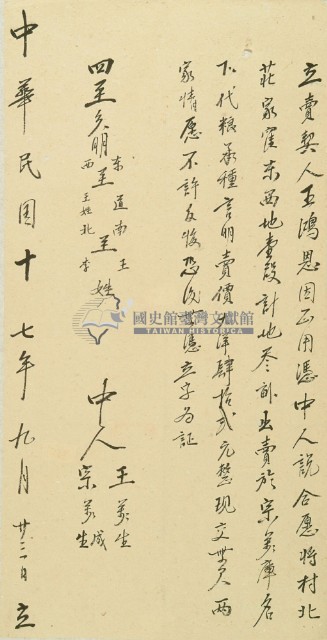 立賣契人王鴻恩因正用憑中人説合愿將村北
莊家窪东西地壹段計地叁畝出賣於宗美庫名
下代粮承種言明賣價大洋肆拾弍元整現交無欠两
家情愿不許反悔恐後無憑立字為証
四至欠明东至道南至王姓
西王姓北李
中人王美生
宗美成
美生
中華民国十七年九月廿三日立
國史館臺灣文獻館
TAIWAN HISTORICA